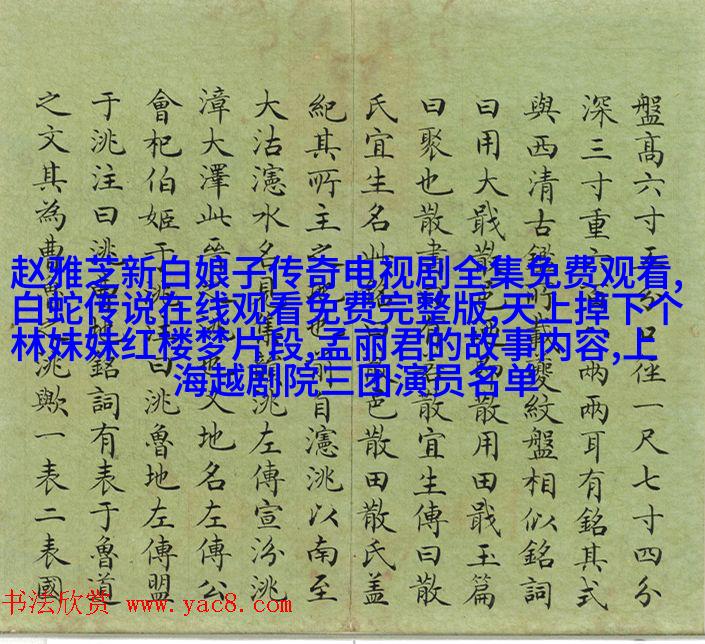 盤高六寸分口一尺七寸四分
深三寸重兩兩耳有銘其式
與西清古鑑所載夔紋盤相似銘詞
曰用大戧散邑散用田戧玉篇
曰聚也散有散宜生傳曰散
氏宜生名此銘曰散邑散田散氏蓋
紀其所主之地也前自瀗洮以南至
大沽瀗水名見集韻洮左傳宣汾洮
漳大澤此洮又地名左傳公
會杞伯姬于洮注曰洮魯地左傳盟
于洮注曰洮地銘詞有表于魯道
之文其為曹之洮歟一表二表國
赵雅芝新白娘子传奇电视剧全集免费观看,
白蛇传说在线观看免费完整版,天上掉下个
林妹妹红楼梦片段,孟丽君的故事内容,上
海越剧院三团演员名单
书法欣赏 www.yac8.com